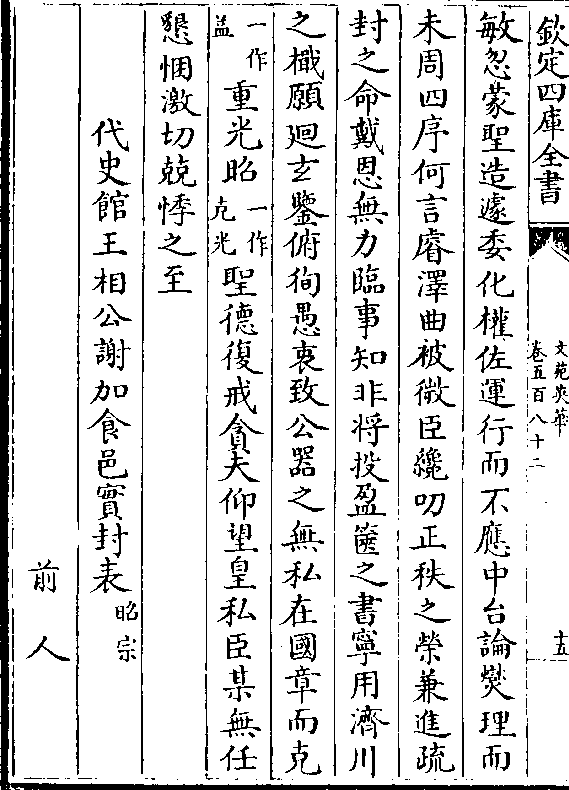 欽定四庫全書
文苑英華
卷五百八十二
十五
敏忽蒙聖造遽委化權佐運行而不應中台論爕理而
未周四序何言睿澤曲被微臣纔叨正秩之榮兼進疏
封之命戴恩無力臨事知非将投盈篋之書寧用濟川
之檝願廻玄鑒俯徇愚衷致公器之無私在國章而克
一作益重光昭一作克光聖德復戒貪夫仰望皇私臣某無任
懇悃激切兢悸之至
代史館王相公謝加食邑實封表昭宗
前人